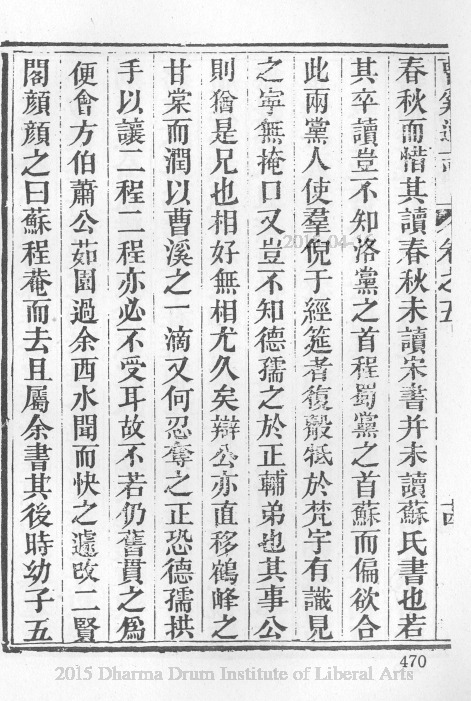 春秋而惜其讀春秋未讀宋書并未讀蘇氏書也若
其卒讀豈不知洛黨之首程蜀黨之首蘇而偏欲合
此兩黨人使羣倪于經筵者復觳牴於梵宇有識見
之寧無掩口又豈不知德孺之於正輔弟也其事公
則猶是兄也相好無相尤久矣辯公亦直移鶴峰之
甘棠而潤以曹溪之一滴又何忍奪之正恐德孺拱
手以讓二程二程亦必不受耳故不若仍舊貫之爲
便會方伯蕭公茹園過余西水聞而快之遽改二賢
閣顏顏之曰蘇程菴而去且屬余書其後時幼子五
470
2015 Dharma Drum Institute of Liberal Arts